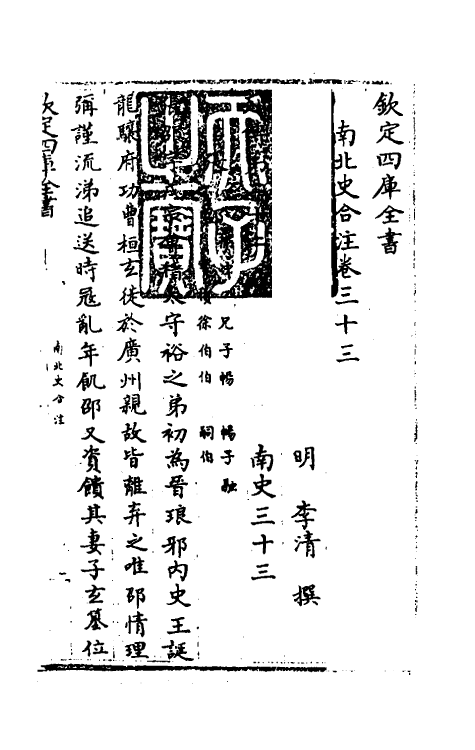 欽定四庫全書
南北史合注卷三十三
明 李清 撰
南史三十三
兄子暢 暢子融
徐伯 伯嗣伯
守裕之弟初為晉琅邪內史王誕
龍驤府功曹桓玄徙於廣州親故皆離弃之唯邵情理
彌謹流涕追送時寇亂年飢邵又資饋其妻子玄篡位
欽定四庫全書
南北史合注
一